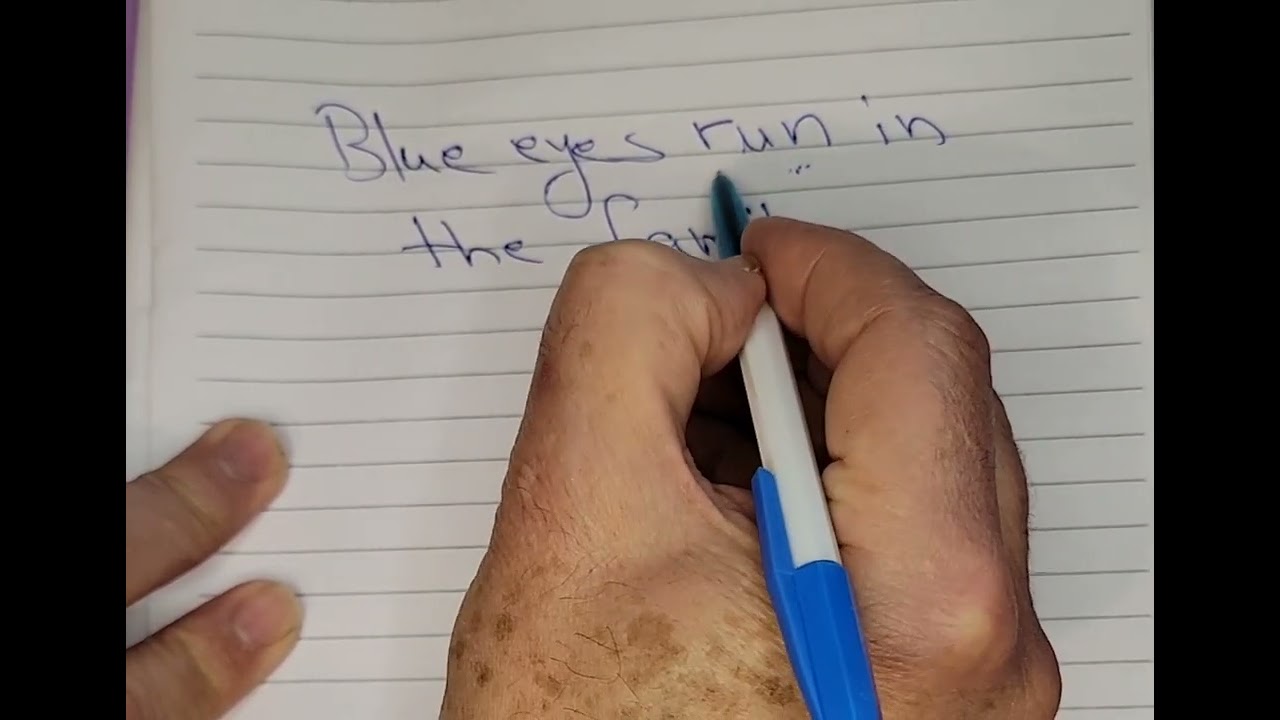 Blue eyes run in
the